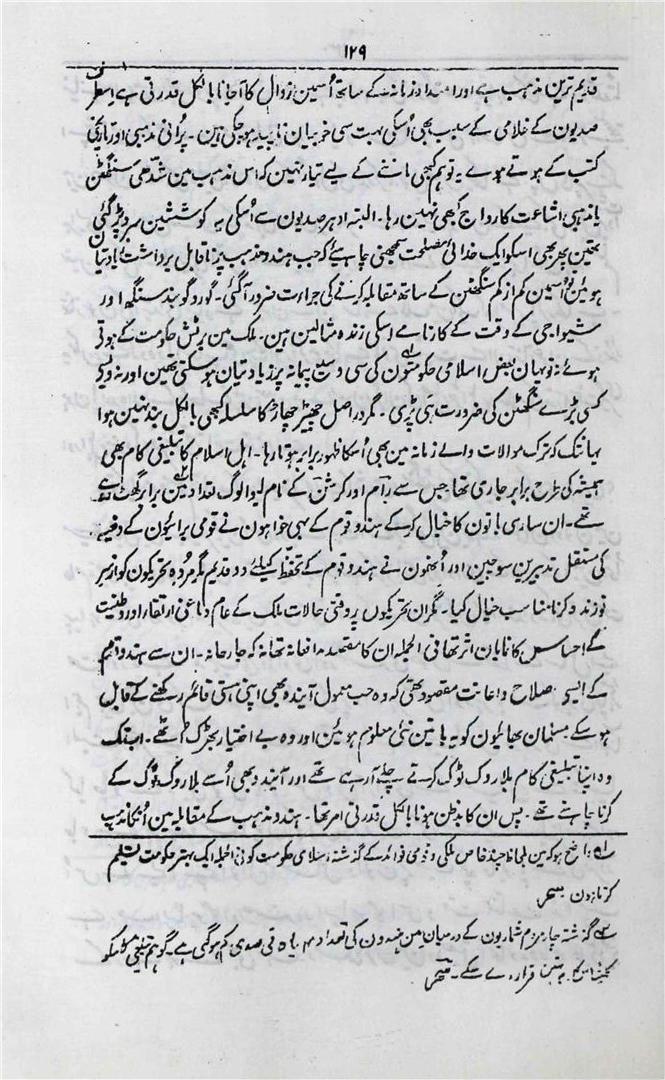 ۱۲۹
قدیم ترین مذہب ہے اور امتداد زمانہ کے ساتھ اُسمین زوال کا آجانا بالکل قدرتی ہے اسطرح
صدیون کے غلامی کے سبب بھی اُسکی بہت سی خوبیان ناپید ہوچکی ہین۔ پرُانی مذہبی اور تاریخی
کتب کے ہوتے ہوے یہ تو ہم کبھی ماننے کے لیے تیار نہین کہ اس مذہب مین شدھی سنگھٹن
یا مذہبی اشاعت کا رواج کبھی نہین رہا۔ البتہ ادہر صدیون سے اُسکی یہ کوششین سرد پڑگئی
تھین پھر بھی اسکو ایک خدائی مصلحت سمجھنی چاہیئے کہ جب ہندو مذہب پر ناقابل برداشت زیادتیان
ہوئین تو اُسمین کم از کم سنگھٹن کے ساتھ مقابلہ کرنے کی جراءت ضرور آگئی۔ گورو گوبند سنگھ اور
شیواجی کے وقت کے کارنامے اسکی زندہ مثالین ہین۔ ملک مین برٹش حکومت کے ہوتے
ہوئے نہ تو یہان بعض اسلامی حکومتون کی سی وسیع پیمانہ پر زیادتیان ہوسکتی تھین اور نہ ویسے
کسی بڑے سنگھٹن کی ضرورت ہی پڑی۔ مگر در اصل چھیڑ چھاڑ کا سلسلہ کبھی بالکل بند نہین ہوا
یہانتک کہ ترک موالات والے زمانہ مین بھی اُسکا ظہور برابر ہوتا رہا۔ اہل اسلام کا تبلیغی کام بھی
ہمیشہ کی طرح برابر جاری تھا جس سے رام اور کرشن کے نام لیوا لوگ تعداد مین برابر گھٹ رہے
تھے۔ ان ساری باتون کا خیال کرکے ہندو قوم کے بہی خواہون نے قومی برائیون کے دفیعہ
کی مستقل تدبیرین سوچین اور اُنھون نے ہندو قوم کے تحفظ کیلئے دو قدیم مگر مردہ تحریکون کو ازسر
نو زندہ کرنا مناسب خیال کیا۔ مگر ان تحریکوں پر وقتی حالات ملک کے عام دماغی ارتقار اور وطنیت
کے احساس کا نمایان اثر تھا فی الجملہ ان کا مقصد مدافعانہ تھا نہ کہ جارحانہ۔ ان سے ہندو قوم
کے ایسی اصلاح و اعانت مقصود تھی کہ وہ حسب معمول آیندہ بھی اپنی ہستی قائم رکھنے کے قابل
ہوسکے مسلمان بھائیون کو یہ باتین نئی معلوم ہوئین اور وہ بے اختیار بھڑک اُٹھے۔ ابتک
وہ اپنا تبلیغی کام بلا روک ٹوک کرتے چلے آرہے تھے اور آیندہ بھی اُسے بلا روک ٹوک کے
کرنا چاہتے تھے۔ پس ان کا بدظن ہونا بالکل قدرتی امر تھا۔ ہندو مذہب کے مقابلہ مین اُنکا مذہب
لہ واضح ہو کہ مین بلحاظ چند خاص ملکی و قومی فوائد کے گذشتہ اسلامی حکومت کو فی الجملہ ایک بہتر حکومت تسلیم
کرتا ہون
گذشتہ چار مردم شماریون کے درمیان مین ہندون کی تعداد فی صدی کم ہوگئی ہے۔ گو ہم تبلیغی کام کو
قرار دے سکے۔